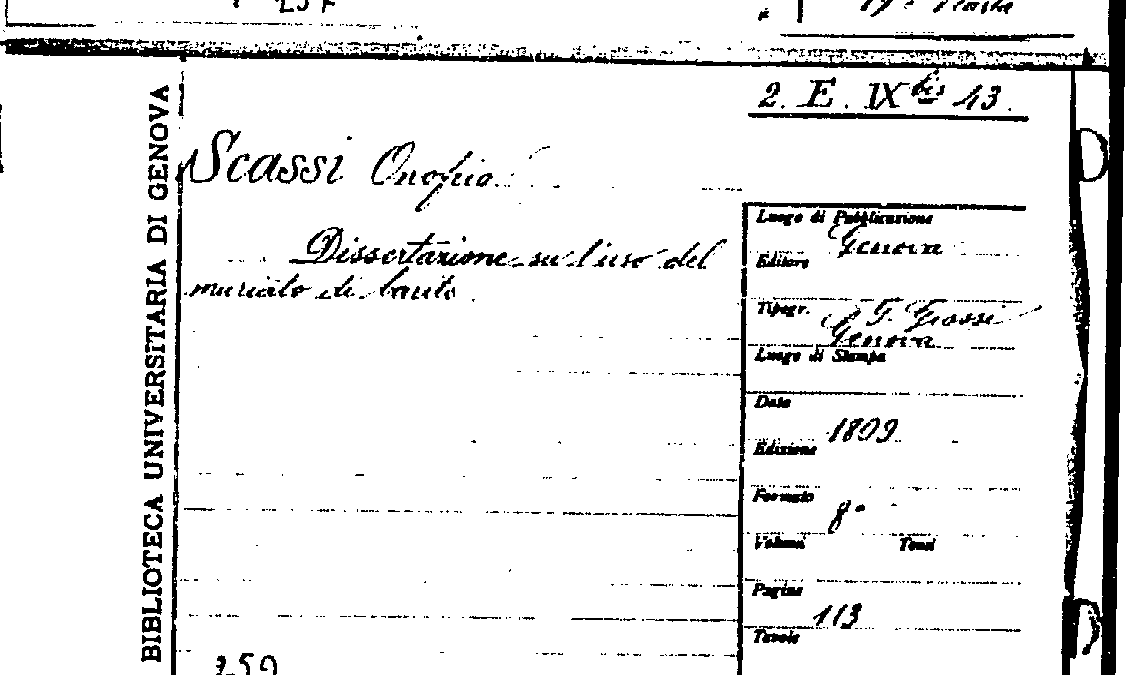 2. E. IX bis 43.
BIBLIOTECA UNIVERSITARIA DI GENOVA
Scassi Onofrio
Dissertazione su l'uso del
muriato di barite
Luogo di Pubblicazione
Genova
Editore
Tipogr. G. Grossi
Genova
Luogo di Stampa
Data
1809
Edizione
Formato
8°
Volumi Tomi
Pagine
113
Tavole
259